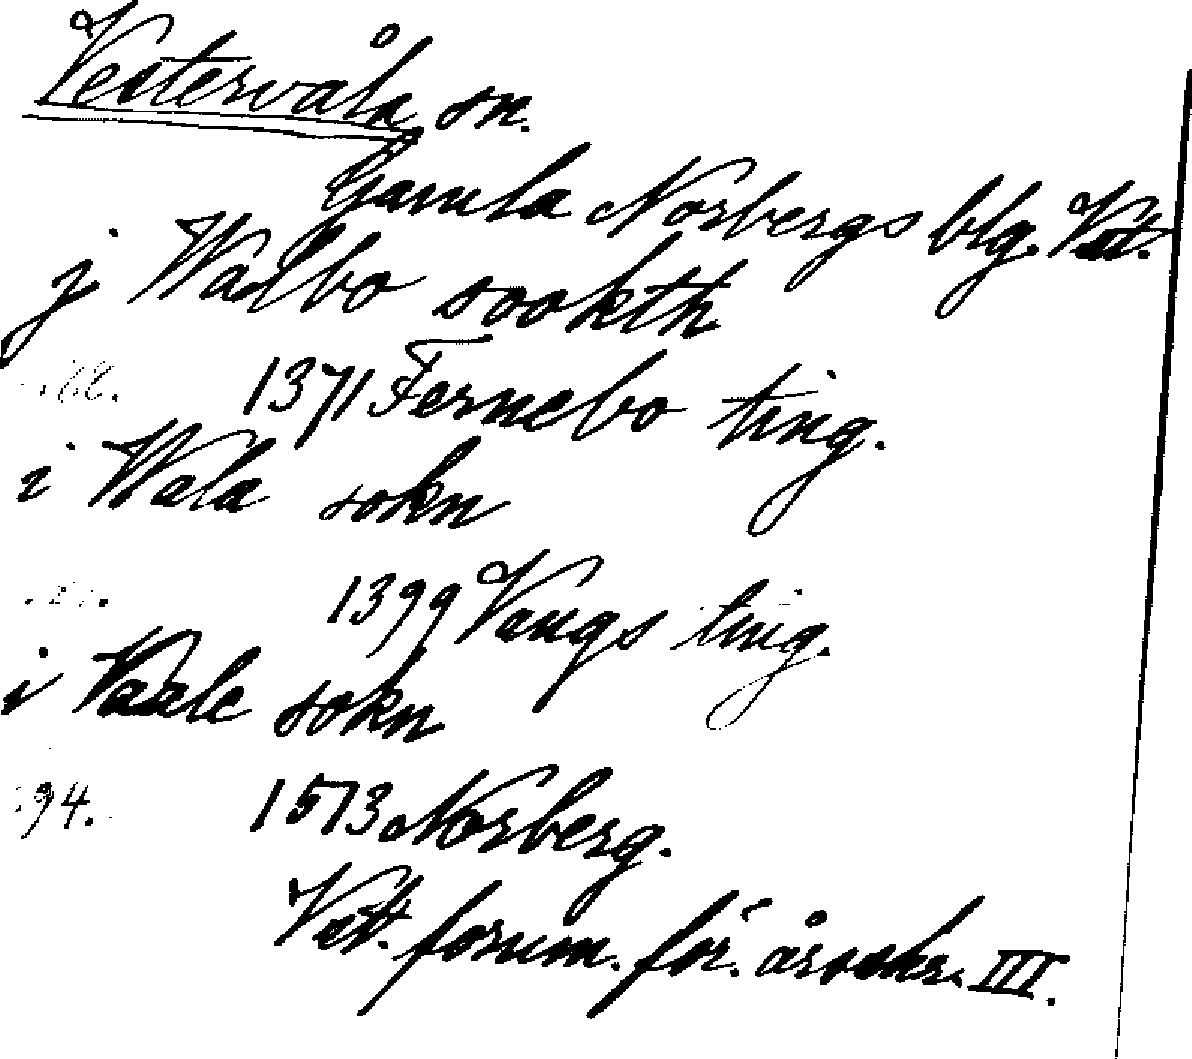 Vestervåla sn.
Gamla Norbergs blg. Vst.
j Walbo sookth
1371 Fernebo ting.
i Wala sokn
1399 Vangs ting.
i Vaale sokn
94. 1513 Norberg.
Vst. fornm. för. årsskr. III.